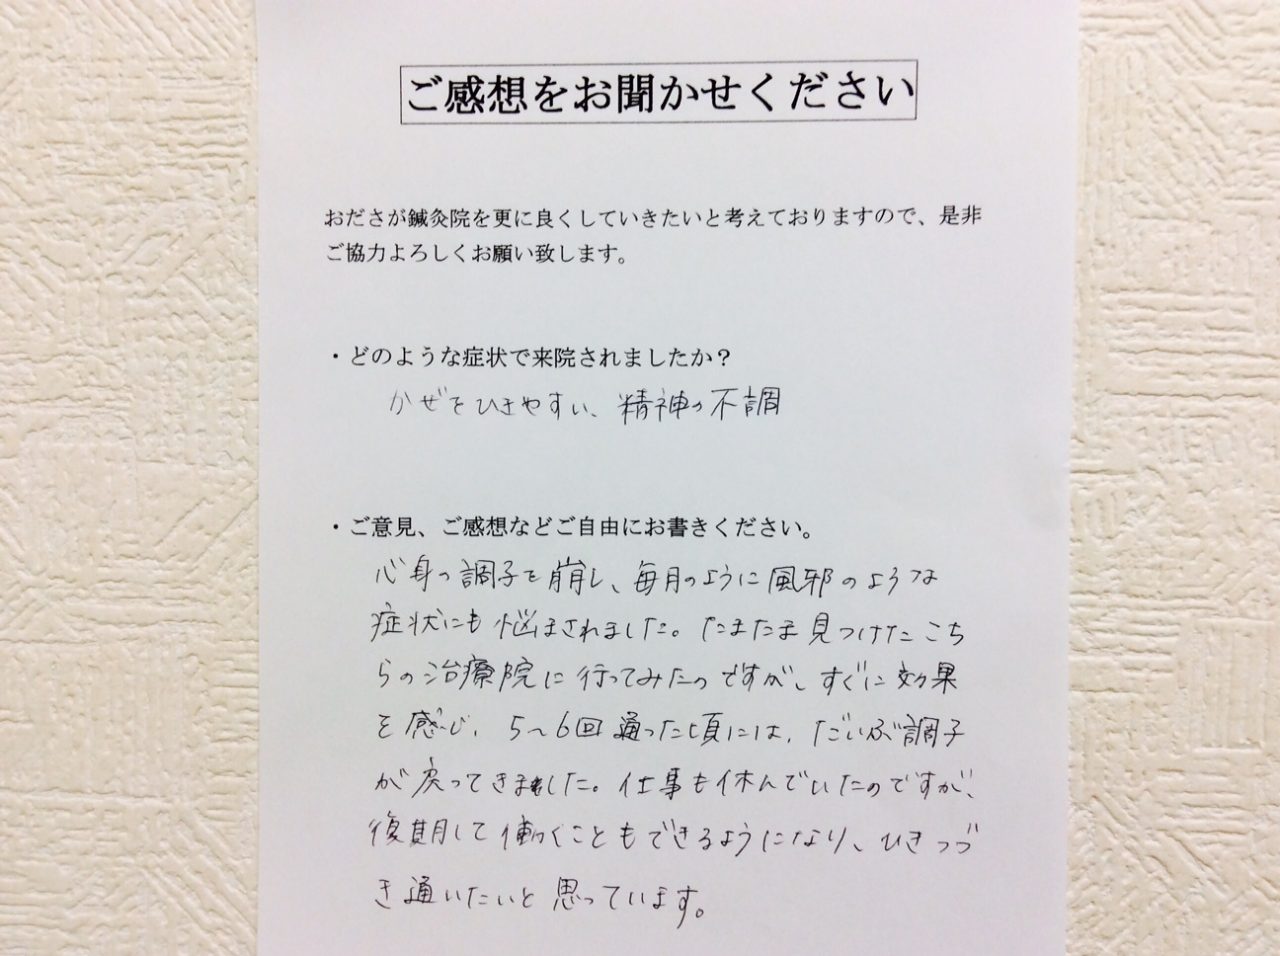 ご感想をお聞かせください
おださが鍼灸院を更に良くしていきたいと考えておりますので、是非
ご協力よろしくお願い致します。
・どのような症状で来院されましたか？
かぜをひきやすい、精神の不調
・ご意見、ご感想などご自由にお書きください。
心身の調子を崩し、毎月のように風邪のような
症状にも悩まされました。たまたま見つけたこち
らの治療院に行ってみたのですが、すぐに効果
を感じ、5〜6回通った頃には、だいぶ調子
が戻ってきました。仕事も休んでいたのですが、
復期して働くこともできるようになり、ひきつづ
き通いたいと思っています。